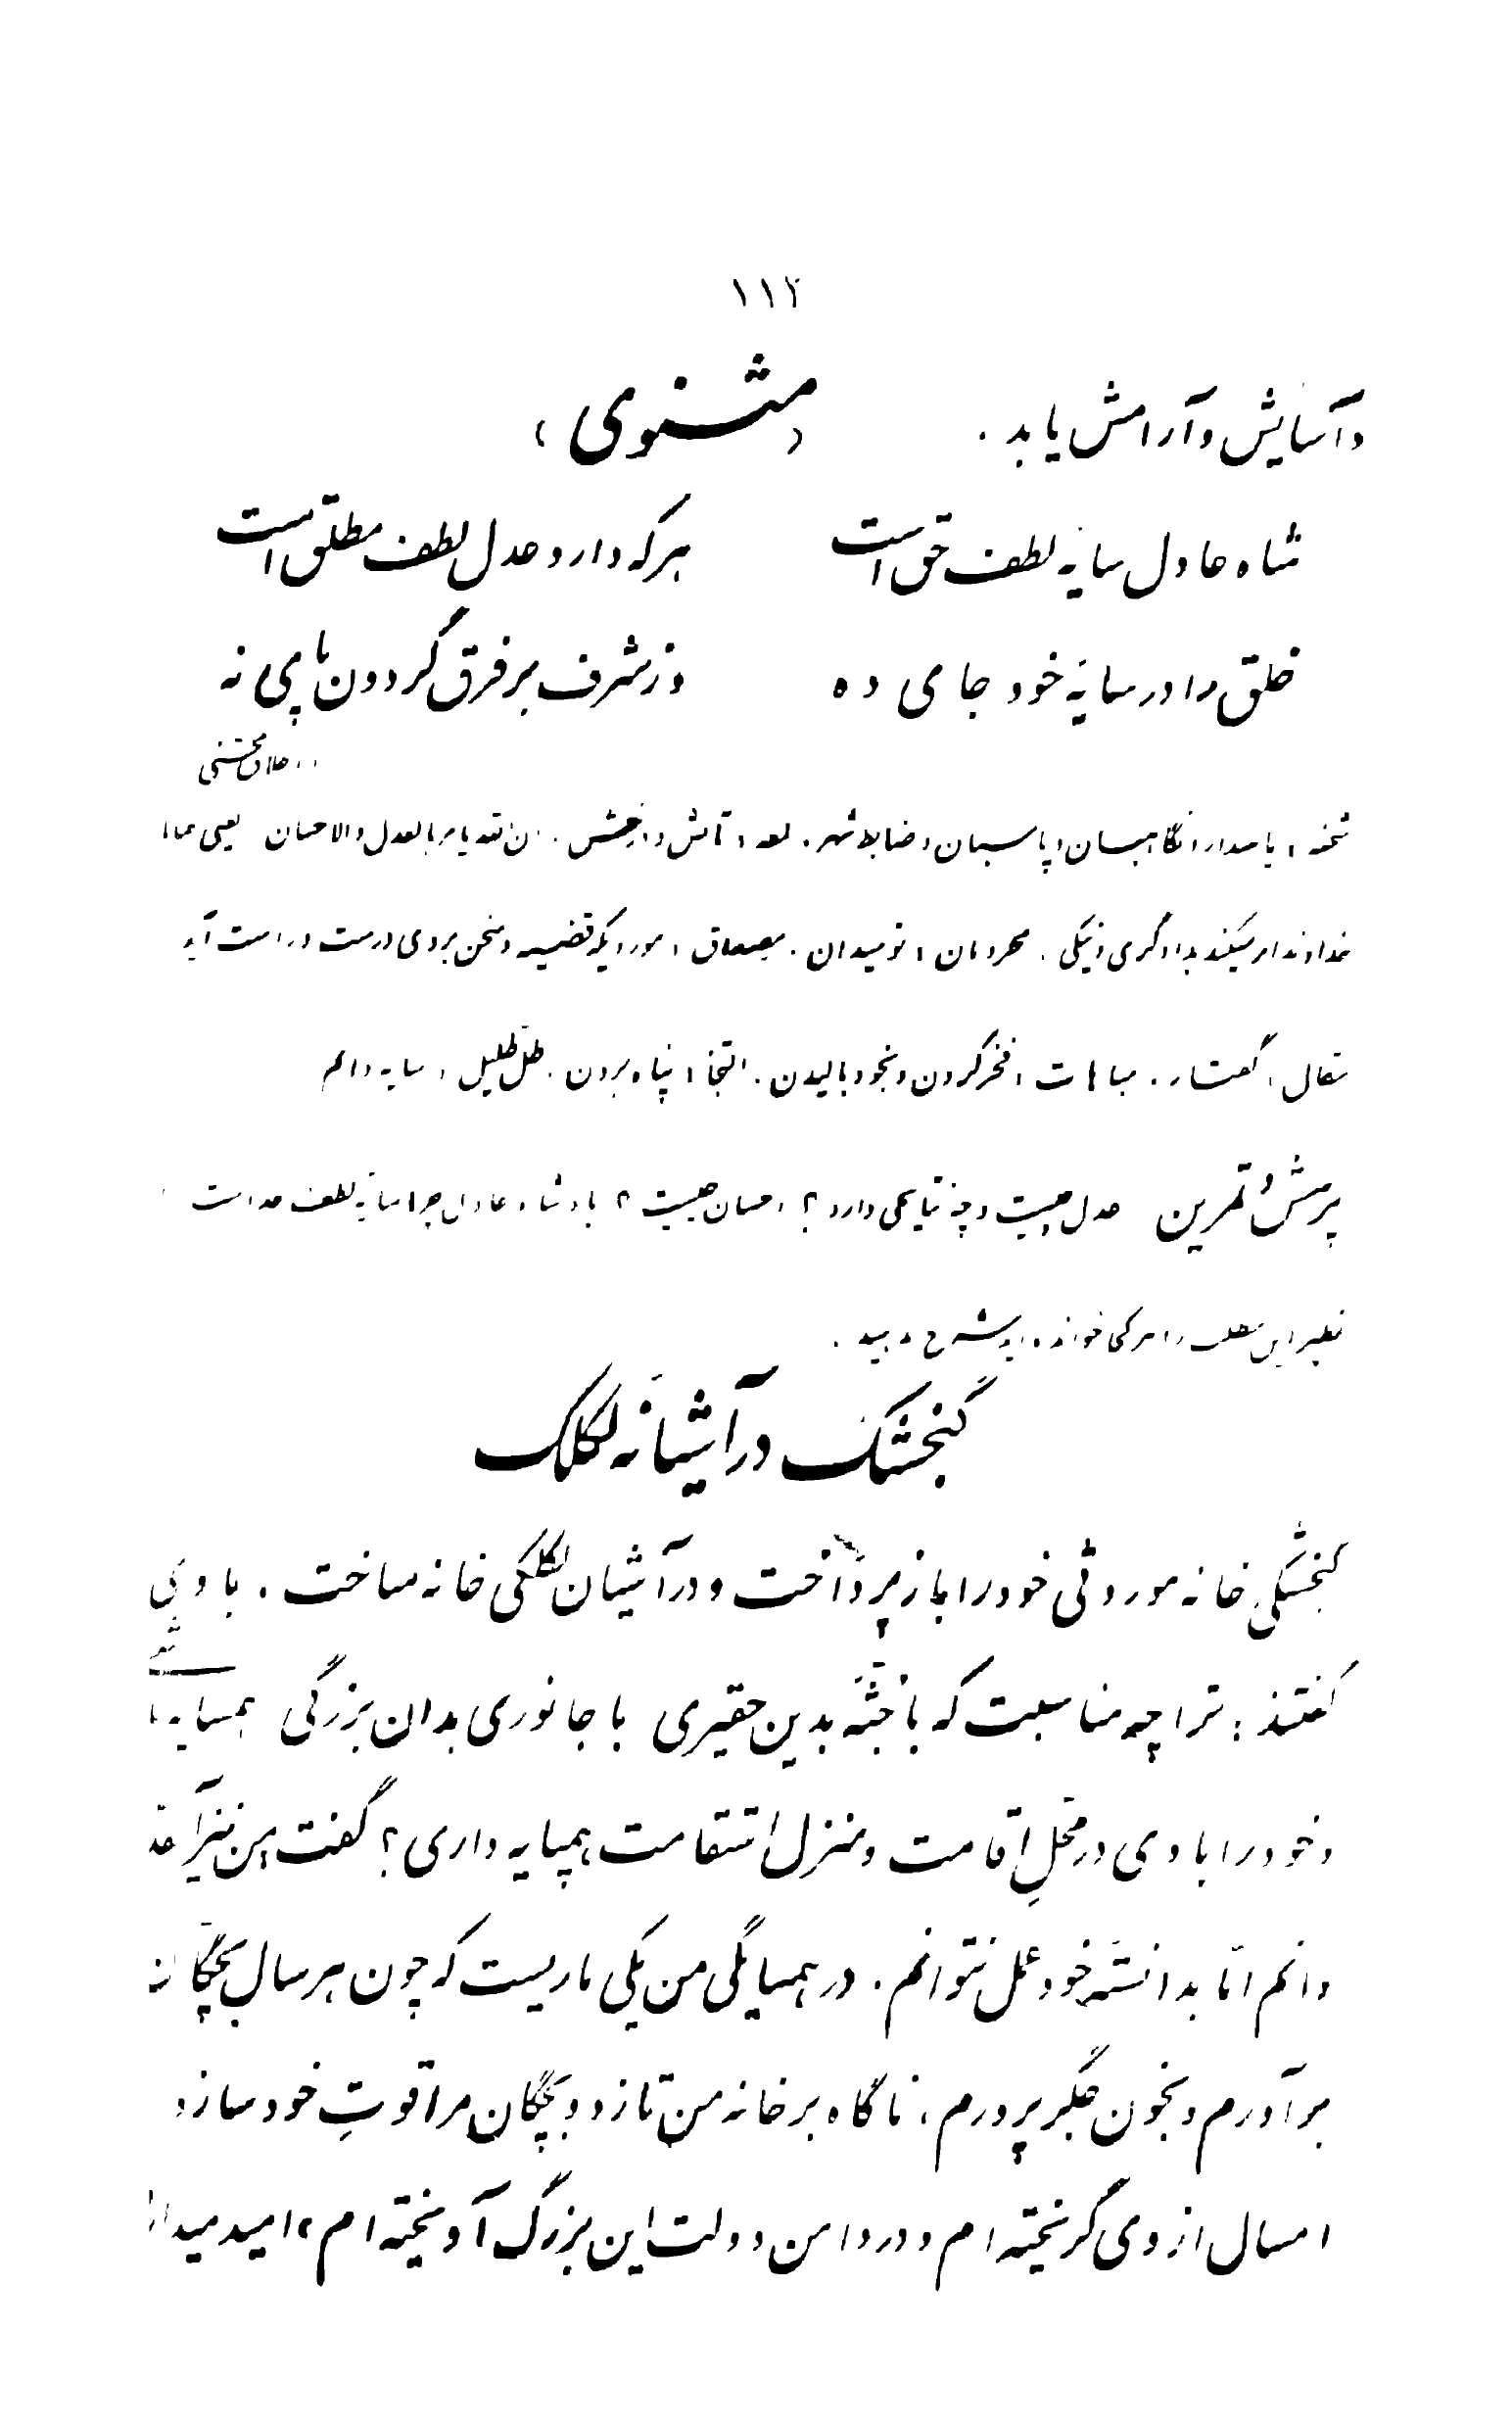 ۱۱۲
و آسایش و آرامش یابد . (مثنوی)
شاه عادل سایهٔ لطف حق است هر که دارد عدل لطف مطلق است
خلق را در سایهٔ خود جای ده وز شرف بر فرق گردون پای نه
محسنی
شحنه ، پاسدار و نگاهبسان و پاسبان و ضابط شهر . لمعه ، تابش و درخشش . ان الله یامر بالعدل والاحسان یعنی همانا
خداوند امر میکند بدادگری و نیکی . محرومان ، نومیدان . مصداق ، موردیکه قضیه و سخن بر وی درست و راست آید
مقال ، گفتار . مباهات ، فخر کردن و بخود بالیدن . التجا ، پناه بردن . ظل ظلیل ، سایه دائم
پرسش و تمرین عدل چیست و چه نتایجی دارد ؟ احسان چیست ؟ پادشاه عادل چرا سایهٔ لطف خداست
نظیر این مطلب را هر کجا خوانده‌اید شرح دهید .
گنجشک در آشیانهٔ لکلک
گنجشکی خانه موروثی خود را باز پرداخت و در آشیان لکلکی خانه ساخت . با وی
گفتند : ترا چه مناسبت که با جثهٔ بدین حقیری با جانوری بدان بزرگی همسایه باشی
و خود را با وی در محلِ اقامت و منزل استقامت همپایه داری ؟ گفت من نیز آنقدر
دانم امّا بدانستهٔ خود عمل نتوانم . در همسایگی من یکی ماریست که چون هر سال بچگان
برآورم و بخون جگر پرورم ، ناگاه بر خانه من تازد و بچگان مرا قوتِ خود سازد
امسال از وی گریخته‌ام و در دامن دولت این بزرگ آویخته‌ام ، امید میدارم